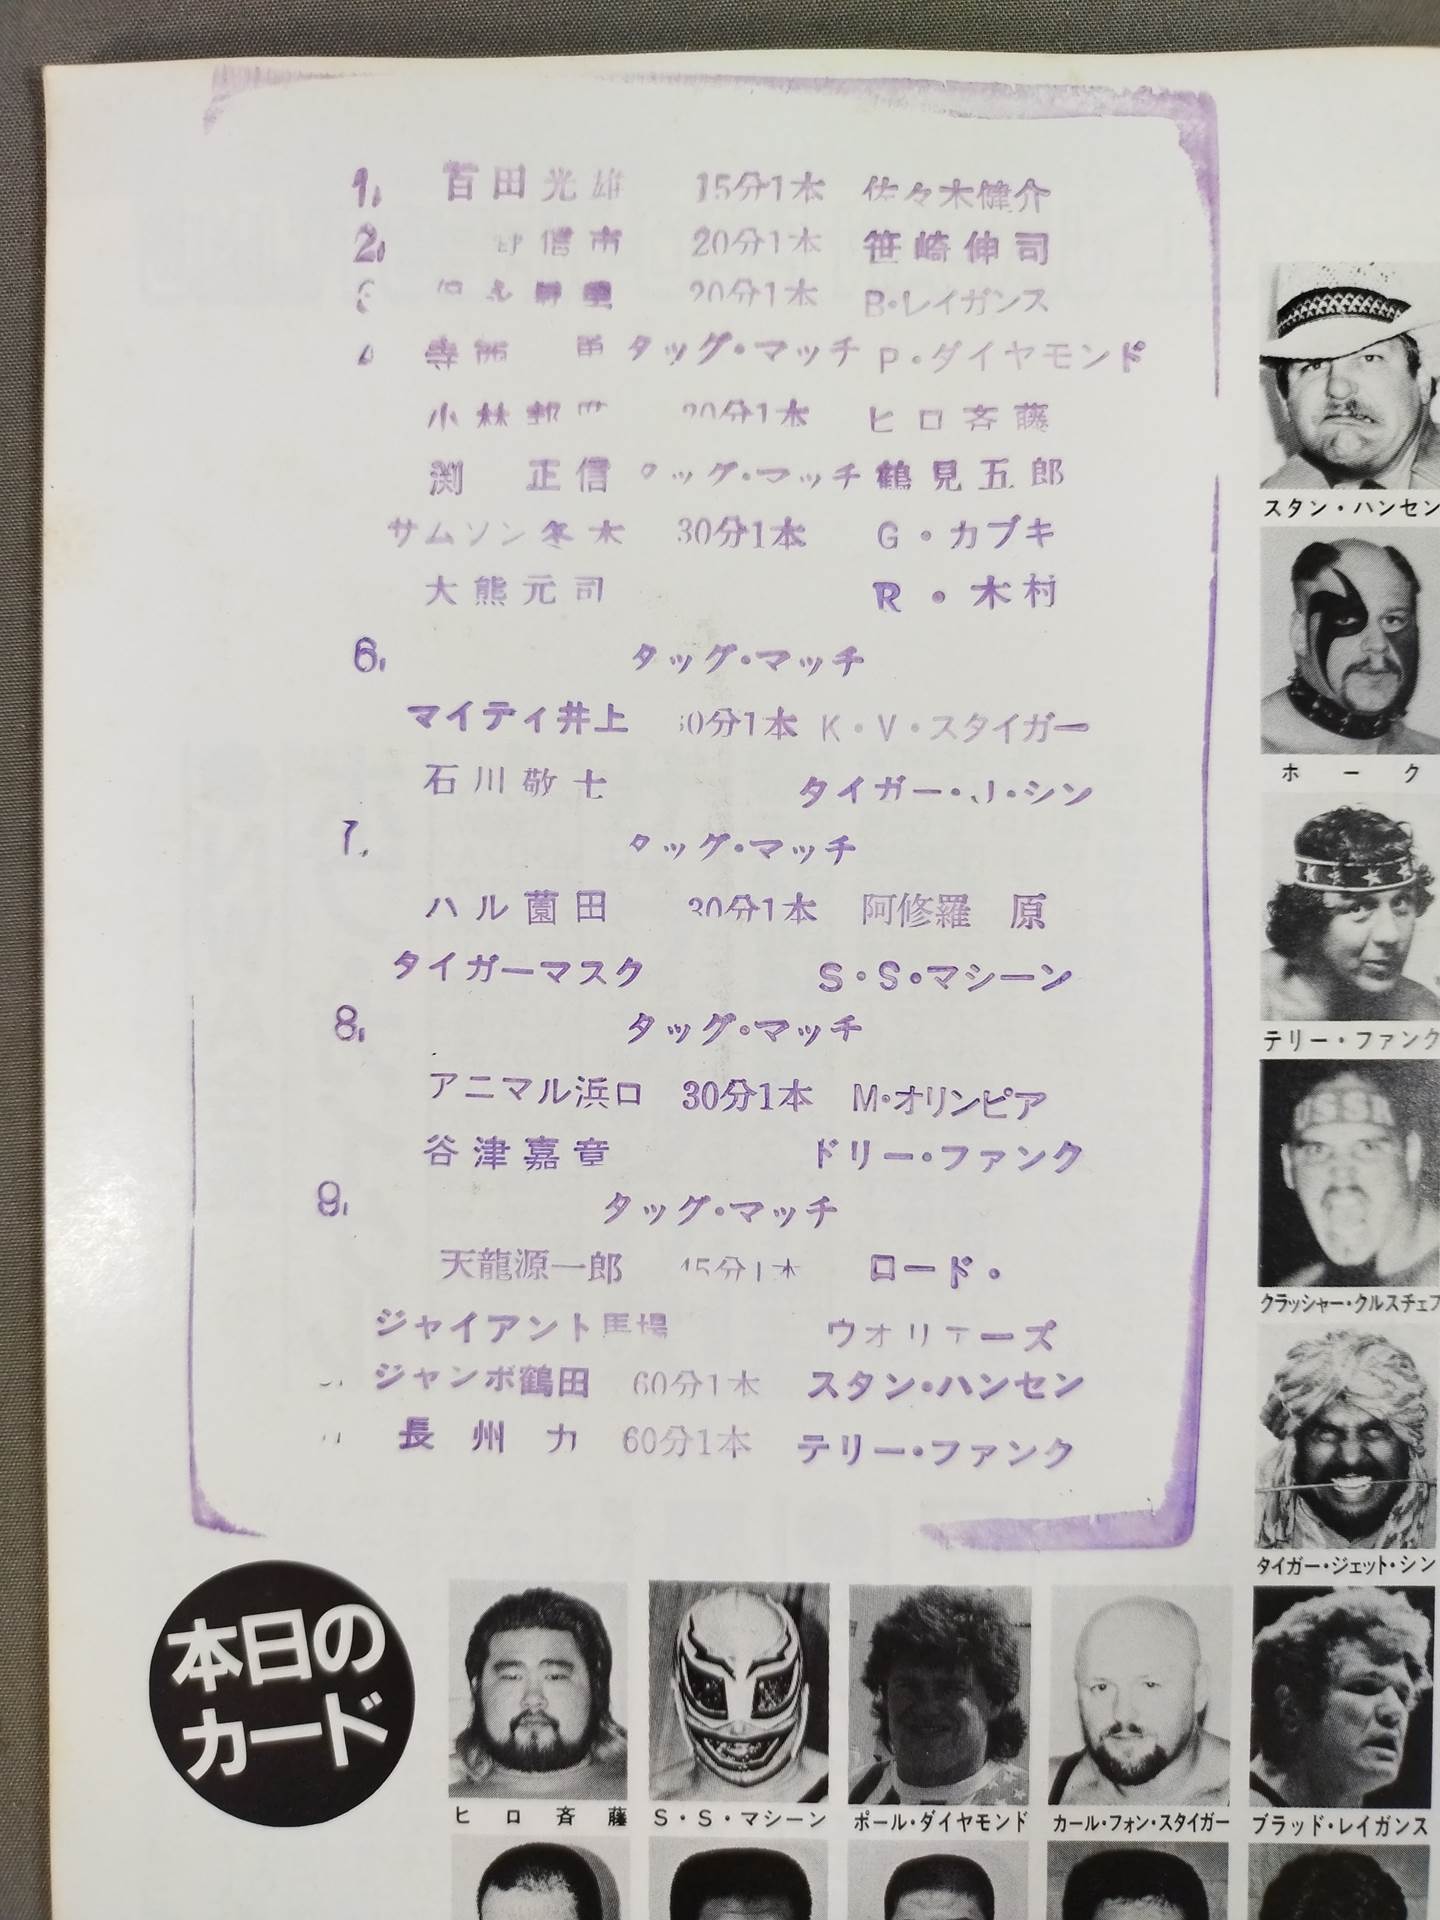 1. 百田光雄 15分1本 佐々木健介
2. 信市 20分1本 笹崎伸司
20分1本 B・レイガンス
寺西 勇 タッグ・マッチ P・ダイヤモンド
小林邦 20分1本 ヒロ斉藤
渕 正信 タッグ・マッチ 鶴見五郎
サムソン冬木 30分1本 G・カブキ
大熊元司 R・木村
6. タッグ・マッチ
マイティ井上 30分1本 K・V・スタイガー
石川敬士 タイガー・J・シン
7. タッグ・マッチ
ハル薗田 30分1本 阿修羅 原
タイガーマスク S・S・マシーン
8. タッグ・マッチ
アニマル浜口 30分1本 M・オリンピア
谷津嘉章 ドリー・ファンク
9. タッグ・マッチ
天龍源一郎 45分1本 ロード・
ジャイアント馬場 ウオリアーズ
ジャンボ鶴田 60分1本 スタン・ハンセン
長州力 60分1本 テリー・ファンク
スタン・ハンセン
ホーク
テリー・ファンク
クラッシャー・クルスチェフ
タイガー・ジェット・シン
本日の
カード
ヒロ斉藤 S・S・マシーン ポール・ダイヤモンド カール・フォン・スタイガー ブラッド・レイガンス